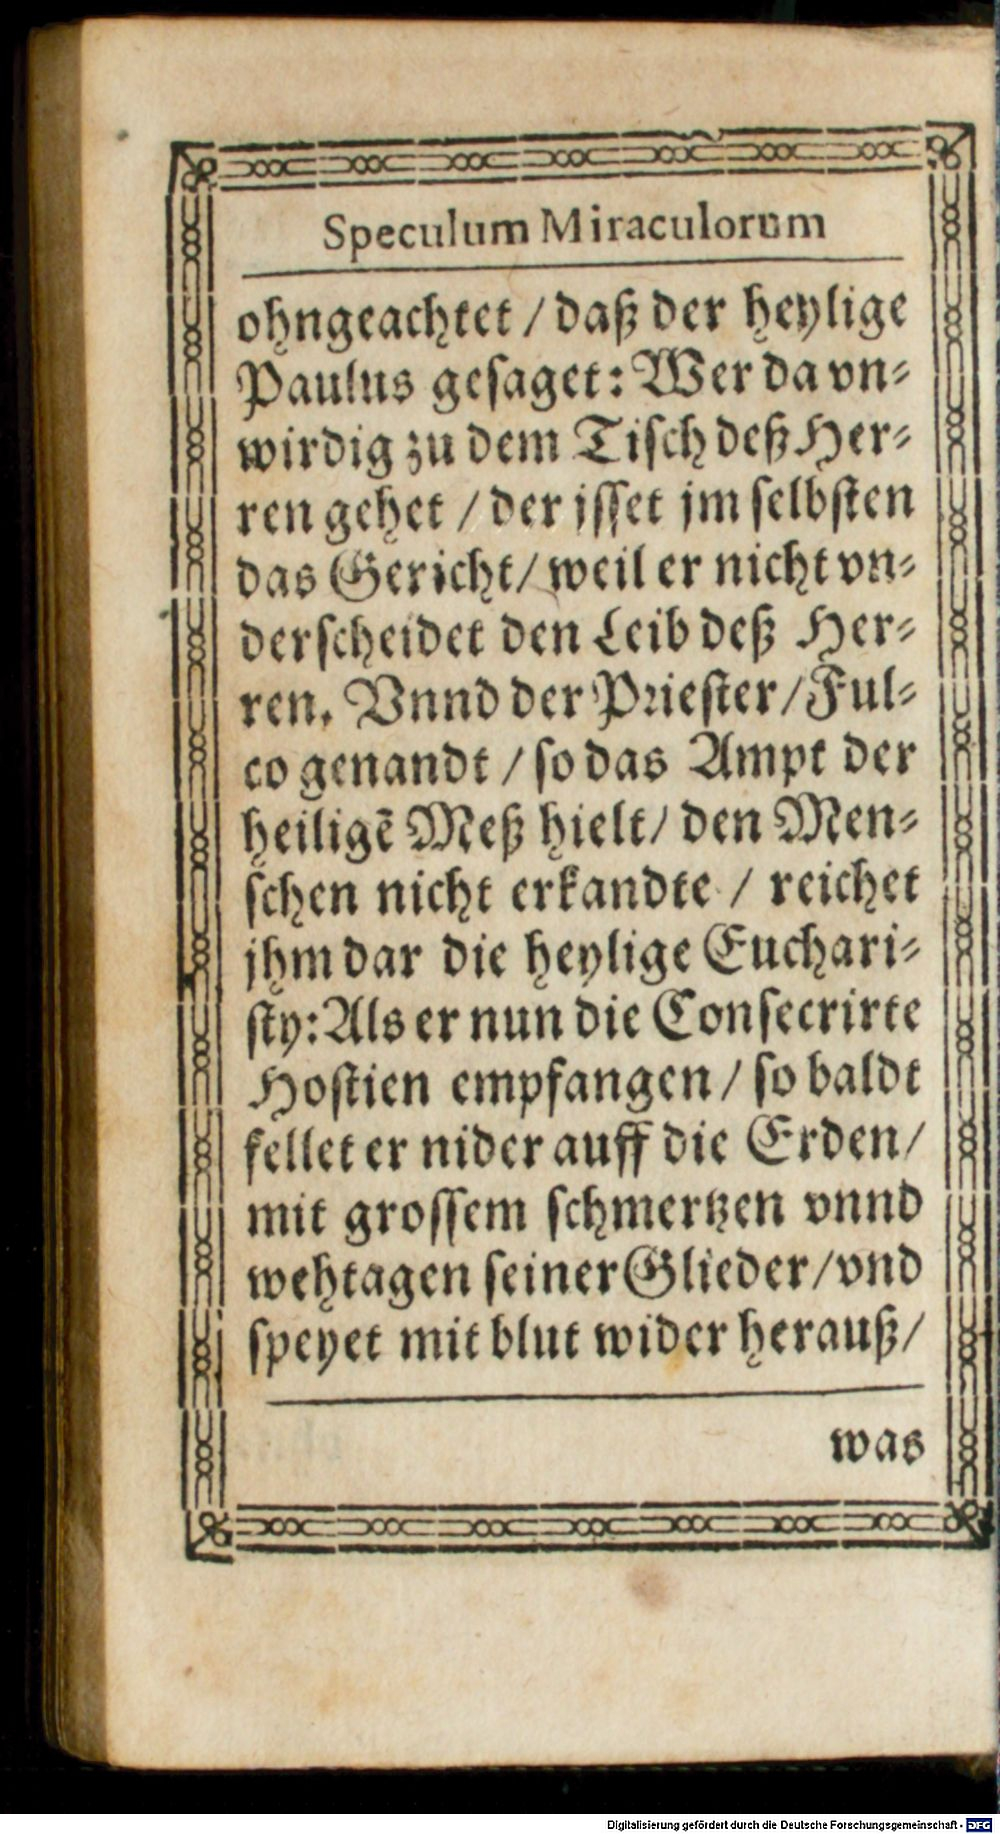 Speculum Miraculorum
ohngeachtet / daß der heylige
Paulus gesaget: Wer da vn-
wirdig zu dem Tisch deß Her-
ren gehet / der isset jm selbsten
das Gericht / weil er nicht vn-
derscheidet den Leib deß Her-
ren. Vnnd der Priester / Ful-
co genandt / so das Ampt der
heiligē Meß hielt / den Men-
schen nicht erkandte / reichet
jhm dar die heylige Euchari-
sty: Als er nun die Consecrirte
Hostien empfangen / so baldt
fellet er nider auff die Erden /
mit grossem schmertzen vnnd
wehtagen seiner Glieder / vnd
speyet mit blut wider herauß /
was
Digitalisierung gefördert durch die Deutsche Forschungsgemeinschaft - DFG